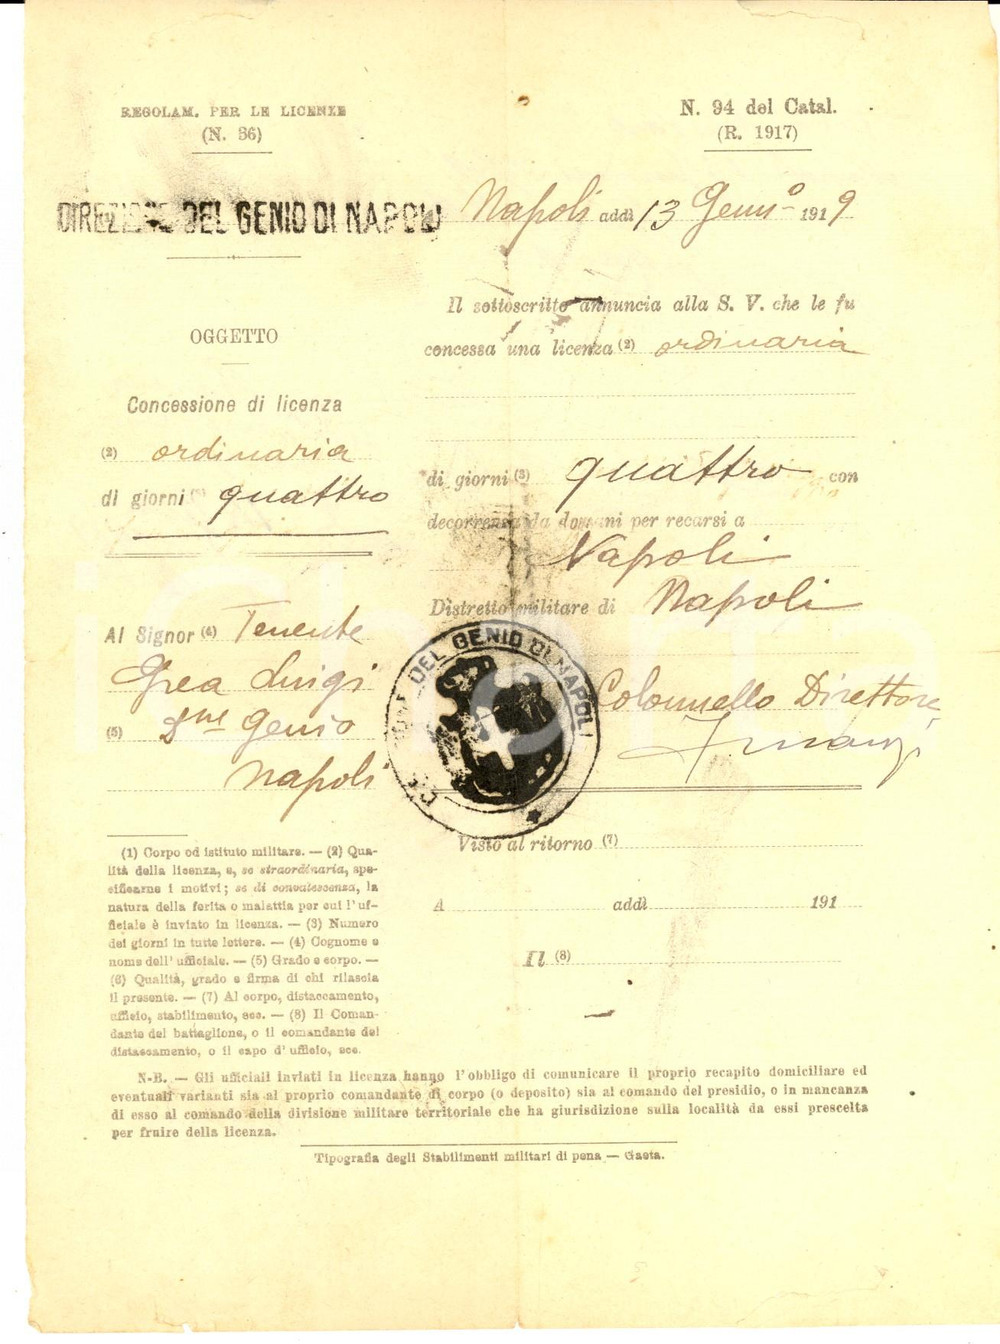 REGOLAM. PER LE LICENZE
(N. 36)
N. 94 del Catal.
(R. 1917)
DIREZIONE DEL GENIO DI NAPOLI
Napoli addì 13 Genn.º 1919
OGGETTO
Concessione di licenza
(2) ordinaria
di giorni quattro
Al Signor (4) Tenente
Grea Luigi
(5) Genio
Napoli
Il sottoscritto annuncia alla S. V. che le fu
concessa una licenza (2) ordinaria
di giorni (3) quattro con
decorrenza da domani per recarsi a
Napoli
Distretto militare di Napoli
Colonnello Direttore
DEL GENIO DI NAPOLI
Visto al ritorno (7)
A addì 191
Il (8)
(1) Corpo od istituto militare. — (2) Qua-
lità della licenza, e, se straordinaria, spe-
cificarne i motivi; se di convalescenza, la
natura della ferita o malattia per cui l'uf-
ficiale è inviato in licenza. — (3) Numero
dei giorni in tutte lettere. — (4) Cognome e
nome dell'ufficiale. — (5) Grado e corpo. —
(6) Qualità, grado e firma di chi rilascia
il presente. — (7) Al corpo, distaccamento,
ufficio, stabilimento, ecc. — (8) Il Coman-
dante del battaglione, o il comandante del
distaccamento, o il capo d'ufficio, ecc.
N-B. — Gli ufficiali inviati in licenza hanno l'obbligo di comunicare il proprio recapito domiciliare ed
eventuali varianti sia al proprio comandante di corpo (o deposito) sia al comando del presidio, o in mancanza
di esso al comando della divisione militare territoriale che ha giurisdizione sulla località da essi prescelta
per fruire della licenza.
Tipografia degli Stabilimenti militari di pena — Gaeta.